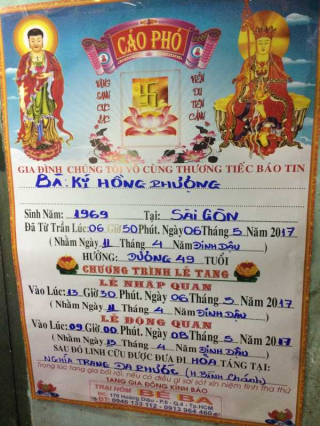 CÁO PHÓ
VÃNG SANH CỰC LẠC
VIÊN DU TIÊN CẢNH
GIA ĐÌNH CHÚNG TÔI VÔ CÙNG THƯƠNG TIẾC BÁO TIN
BA. KÝ HỒNG PHƯỢNG
Sinh Năm: 1969 Tại: SÀI GÒN
Đã Từ Trần Lúc: 06 Giờ 30 Phút. Ngày 06 Tháng 5 Năm 2017
(Nhằm Ngày 11 Tháng 4 Năm ĐINH DẬU)
HƯỞNG: DƯƠNG 49 TUỔI
CHƯƠNG TRÌNH LỄ TANG
LỄ NHẬP QUAN
Vào Lúc: 13 Giờ 30 Phút. Ngày 06 Tháng 5 Năm 2017
(Nhằm Ngày 11 Tháng 4 Năm ĐINH DẬU)
LỄ ĐỘNG QUAN
Vào Lúc: 09 Giờ 00 Phút. Ngày 08 Tháng 5 Năm 2017
(Nhằm Ngày 13 Tháng 4 Năm ĐINH DẬU)
SAU ĐÓ LINH CỮU ĐƯỢC ĐƯA ĐI HỎA TÁNG TẠI:
NGHĨA TRANG ĐA PHƯỚC (H. BÌNH CHÁNH)
Trong lúc tang gia bối rối, nếu có điều gì sai sót xin niệm tình tha thứ
TANG GIA ĐỒNG KÍNH BÁO
TRẠI HÒM BÉ BA
ĐC: 178 Hoàng Diệu - P.8 - Q.4 - Tp.HCM
ĐT: 0946 133 112 - 0913 964 460